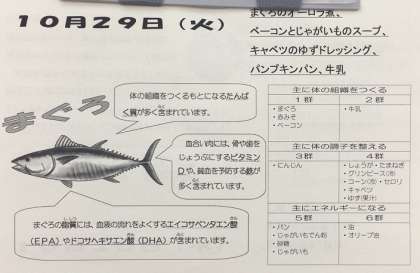 10月29日（火）
まぐろのオーロラ煮、
ベーコンとじゃがいものスープ、
キャベツのゆずドレッシング、
パンプキンパン、牛乳
まぐろ
体の組織をつくるもとになるたんぱ
く質が多く含まれています。
血合い肉には、骨や歯を
じょうぶにするビタミン
Dや、貧血を予防する鉄が
多く含まれています。
まぐろの脂質には、血液の流れをよくするエイコサペンタエン酸
（EPA）やドコサヘキサエン酸（DHA）が含まれています。
主に体の組織をつくる
1群 2群
・まぐろ ・牛乳
・赤みそ
・ベーコン
主に体の調子を整える
3群 4群
・にんじん ・しょうが・たまねぎ
・グリンピース(冷)
・コーン(冷)・セロリ
・キャベツ
・ゆず(果汁)
主にエネルギーになる
5群 6群
・パン ・油
・じゃがいもでん粉 ・オリーブ油
・砂糖
・じゃがいも